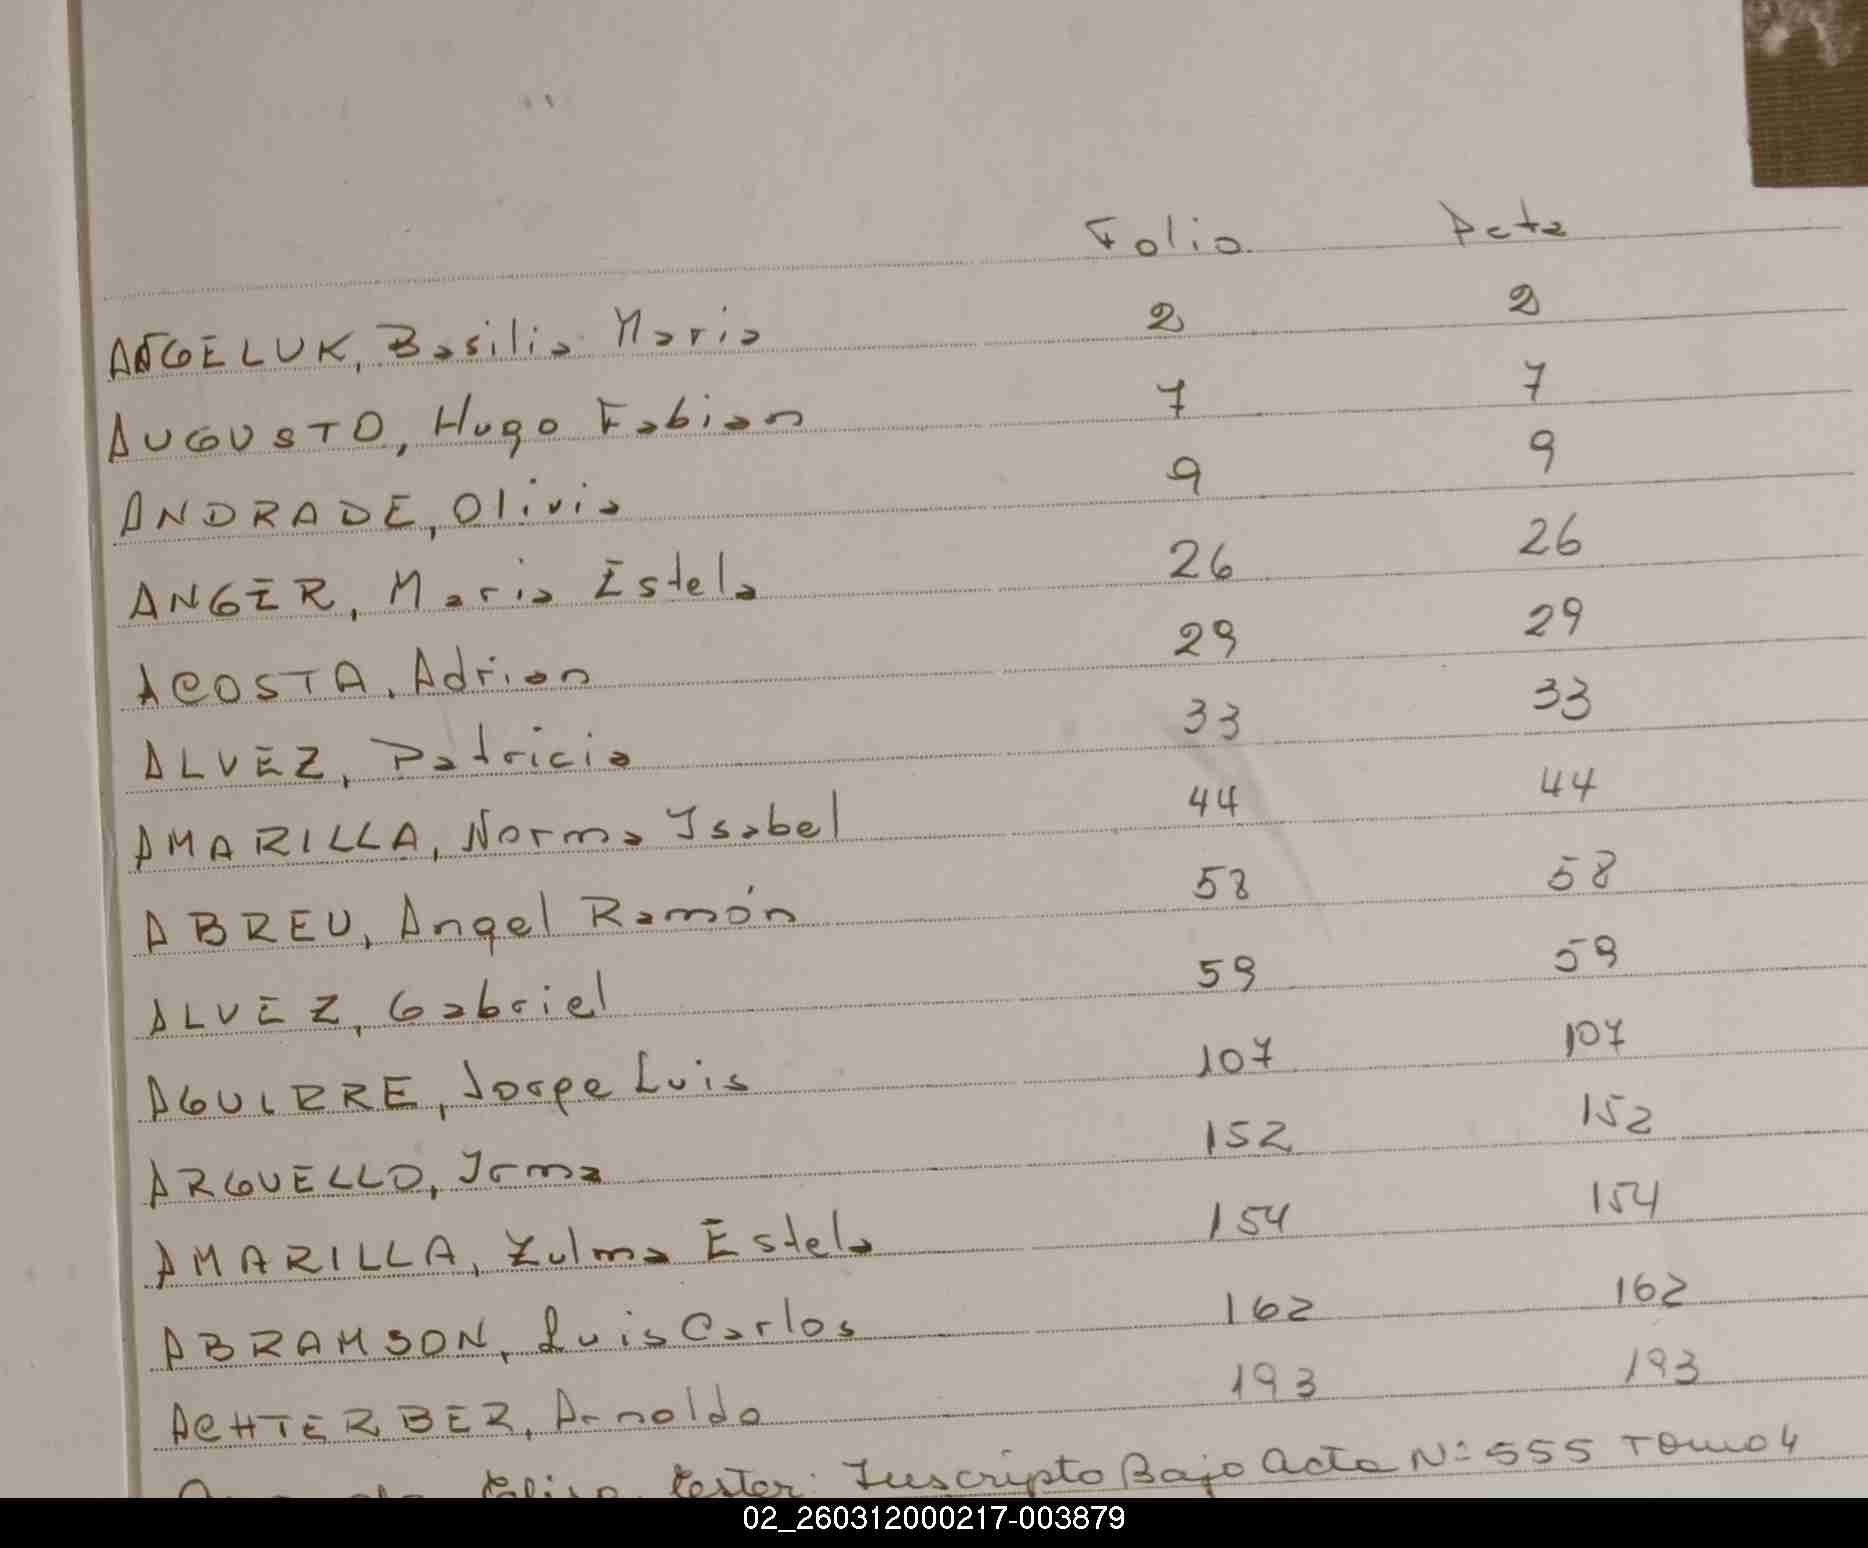 Folio Acta
ANGELUK, Basilia Maria 2 2
AUGUSTO, Hugo Fabian 7 7
ANDRADE, Olivia 9 9
ANGER, Maria Estela 26 26
ACOSTA, Adrian 29 29
ALVEZ, Patricia 33 33
AMARILLA, Norma Isabel 44 44
ABREU, Angel Ramón 58 58
ALVEZ, Gabriel 59 59
AGUIRRE, Jorge Luis 107 107
ARGUELLO, Irma 152 152
AMARILLA, Zulma Estela 154 154
ABRAMSON, Luis Carlos 162 162
ACHTERBER, Arnoldo 193 193
Inscripto Bajo Acta Nº 555 Tomo 4
02_260312000217-003879